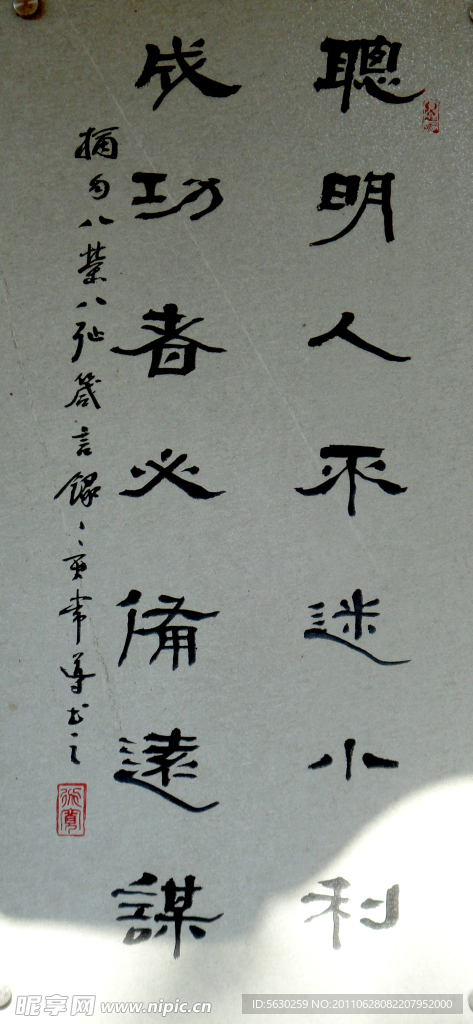 聰明人不迷小利
成功者必備遠謀
摘句八荣八耻箴言録
昵享网 www.nipic.cn
ID:5630259 NO:20110628082207952000